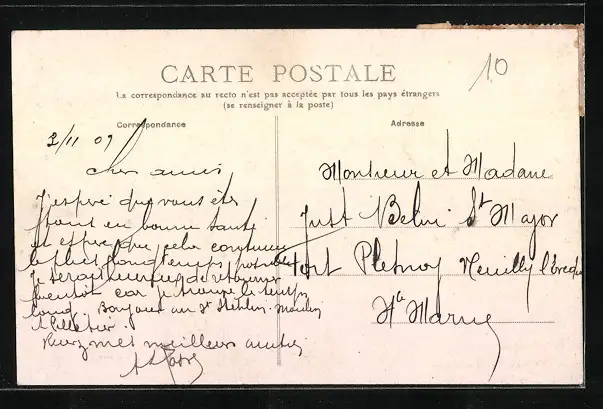 10
CARTE POSTALE
La correspondance au recto n'est pas acceptée par tous les pays étrangers
(se renseigner à la poste)
Correspondance
Adresse
3/11 09
cher amis
J'espère que vous êtes
tous en bonne santé
et espère que cela continuera
le plus longtemps possible
Je serais de retourner
bientôt car je trouve le temps
long Bonjour au St
Pelletier.
Recevez mes meilleurs amitiés
Monsieur et Madame
Just St Major
fort Plesnoy Neuilly l'Evêque
Hte Marne